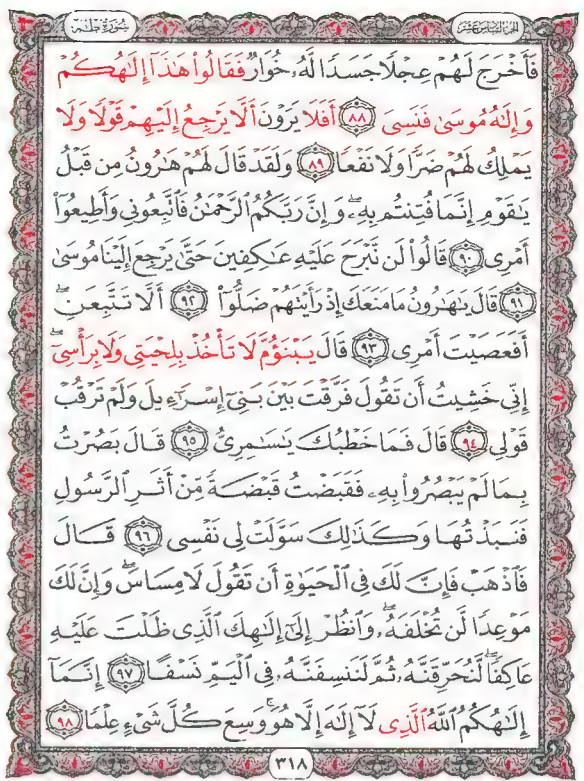 سُورَةُ طٰهٰ
الجزء السادس عشر
فَأَخْرَجَ لَهُمْ عِجْلًا جَسَدًا لَّهُۥ خُوَارٌ فَقَالُوا۟ هَـٰذَآ إِلَـٰهُكُمْ
وَإِلَـٰهُ مُوسَىٰ فَنَسِىَ ٨٨ أَفَلَا يَرَوْنَ أَلَّا يَرْجِعُ إِلَيْهِمْ قَوْلًا وَلَا
يَمْلِكُ لَهُمْ ضَرًّا وَلَا نَفْعًا ٨٩ وَلَقَدْ قَالَ لَهُمْ هَـٰرُونُ مِن قَبْلُ
يَـٰقَوْمِ إِنَّمَا فُتِنتُم بِهِۦ ۖ وَإِنَّ رَبَّكُمُ ٱلرَّحْمَـٰنُ فَٱتَّبِعُونِى وَأَطِيعُوٓا۟
أَمْرِى ٩٠ قَالُوا۟ لَن نَّبْرَحَ عَلَيْهِ عَـٰكِفِينَ حَتَّىٰ يَرْجِعَ إِلَيْنَا مُوسَىٰ
٩١ قَالَ يَـٰهَـٰرُونُ مَا مَنَعَكَ إِذْ رَأَيْتَهُمْ ضَلُّوٓا۟ ٩٢ أَلَّا تَتَّبِعَنِ ۖ
أَفَعَصَيْتَ أَمْرِى ٩٣ قَالَ يَبْنَؤُمَّ لَا تَأْخُذْ بِلِحْيَتِى وَلَا بِرَأْسِىٓ ۖ
إِنِّى خَشِيتُ أَن تَقُولَ فَرَّقْتَ بَيْنَ بَنِىٓ إِسْرَٰٓءِيلَ وَلَمْ تَرْقُبْ
قَوْلِى ٩٤ قَالَ فَمَا خَطْبُكَ يَـٰسَـٰمِرِىُّ ٩٥ قَالَ بَصُرْتُ
بِمَا لَمْ يَبْصُرُوا۟ بِهِۦ فَقَبَضْتُ قَبْضَةً مِّنْ أَثَرِ ٱلرَّسُولِ
فَنَبَذْتُهَا وَكَذَٰلِكَ سَوَّلَتْ لِى نَفْسِى ٩٦ قَالَ
فَٱذْهَبْ فَإِنَّ لَكَ فِى ٱلْحَيَوٰةِ أَن تَقُولَ لَا مِسَاسَ ۖ وَإِنَّ لَكَ
مَوْعِدًا لَّن تُخْلَفَهُۥ ۖ وَٱنظُرْ إِلَىٰٓ إِلَـٰهِكَ ٱلَّذِى ظَلْتَ عَلَيْهِ
عَاكِفًا ۖ لَّنُحَرِّقَنَّهُۥ ثُمَّ لَنَنسِفَنَّهُۥ فِى ٱلْيَمِّ نَسْفًا ٩٧ إِنَّمَآ
إِلَـٰهُكُمُ ٱللَّهُ ٱلَّذِى لَآ إِلَـٰهَ إِلَّا هُوَ ۚ وَسِعَ كُلَّ شَىْءٍ عِلْمًا ٩٨
٣١٨